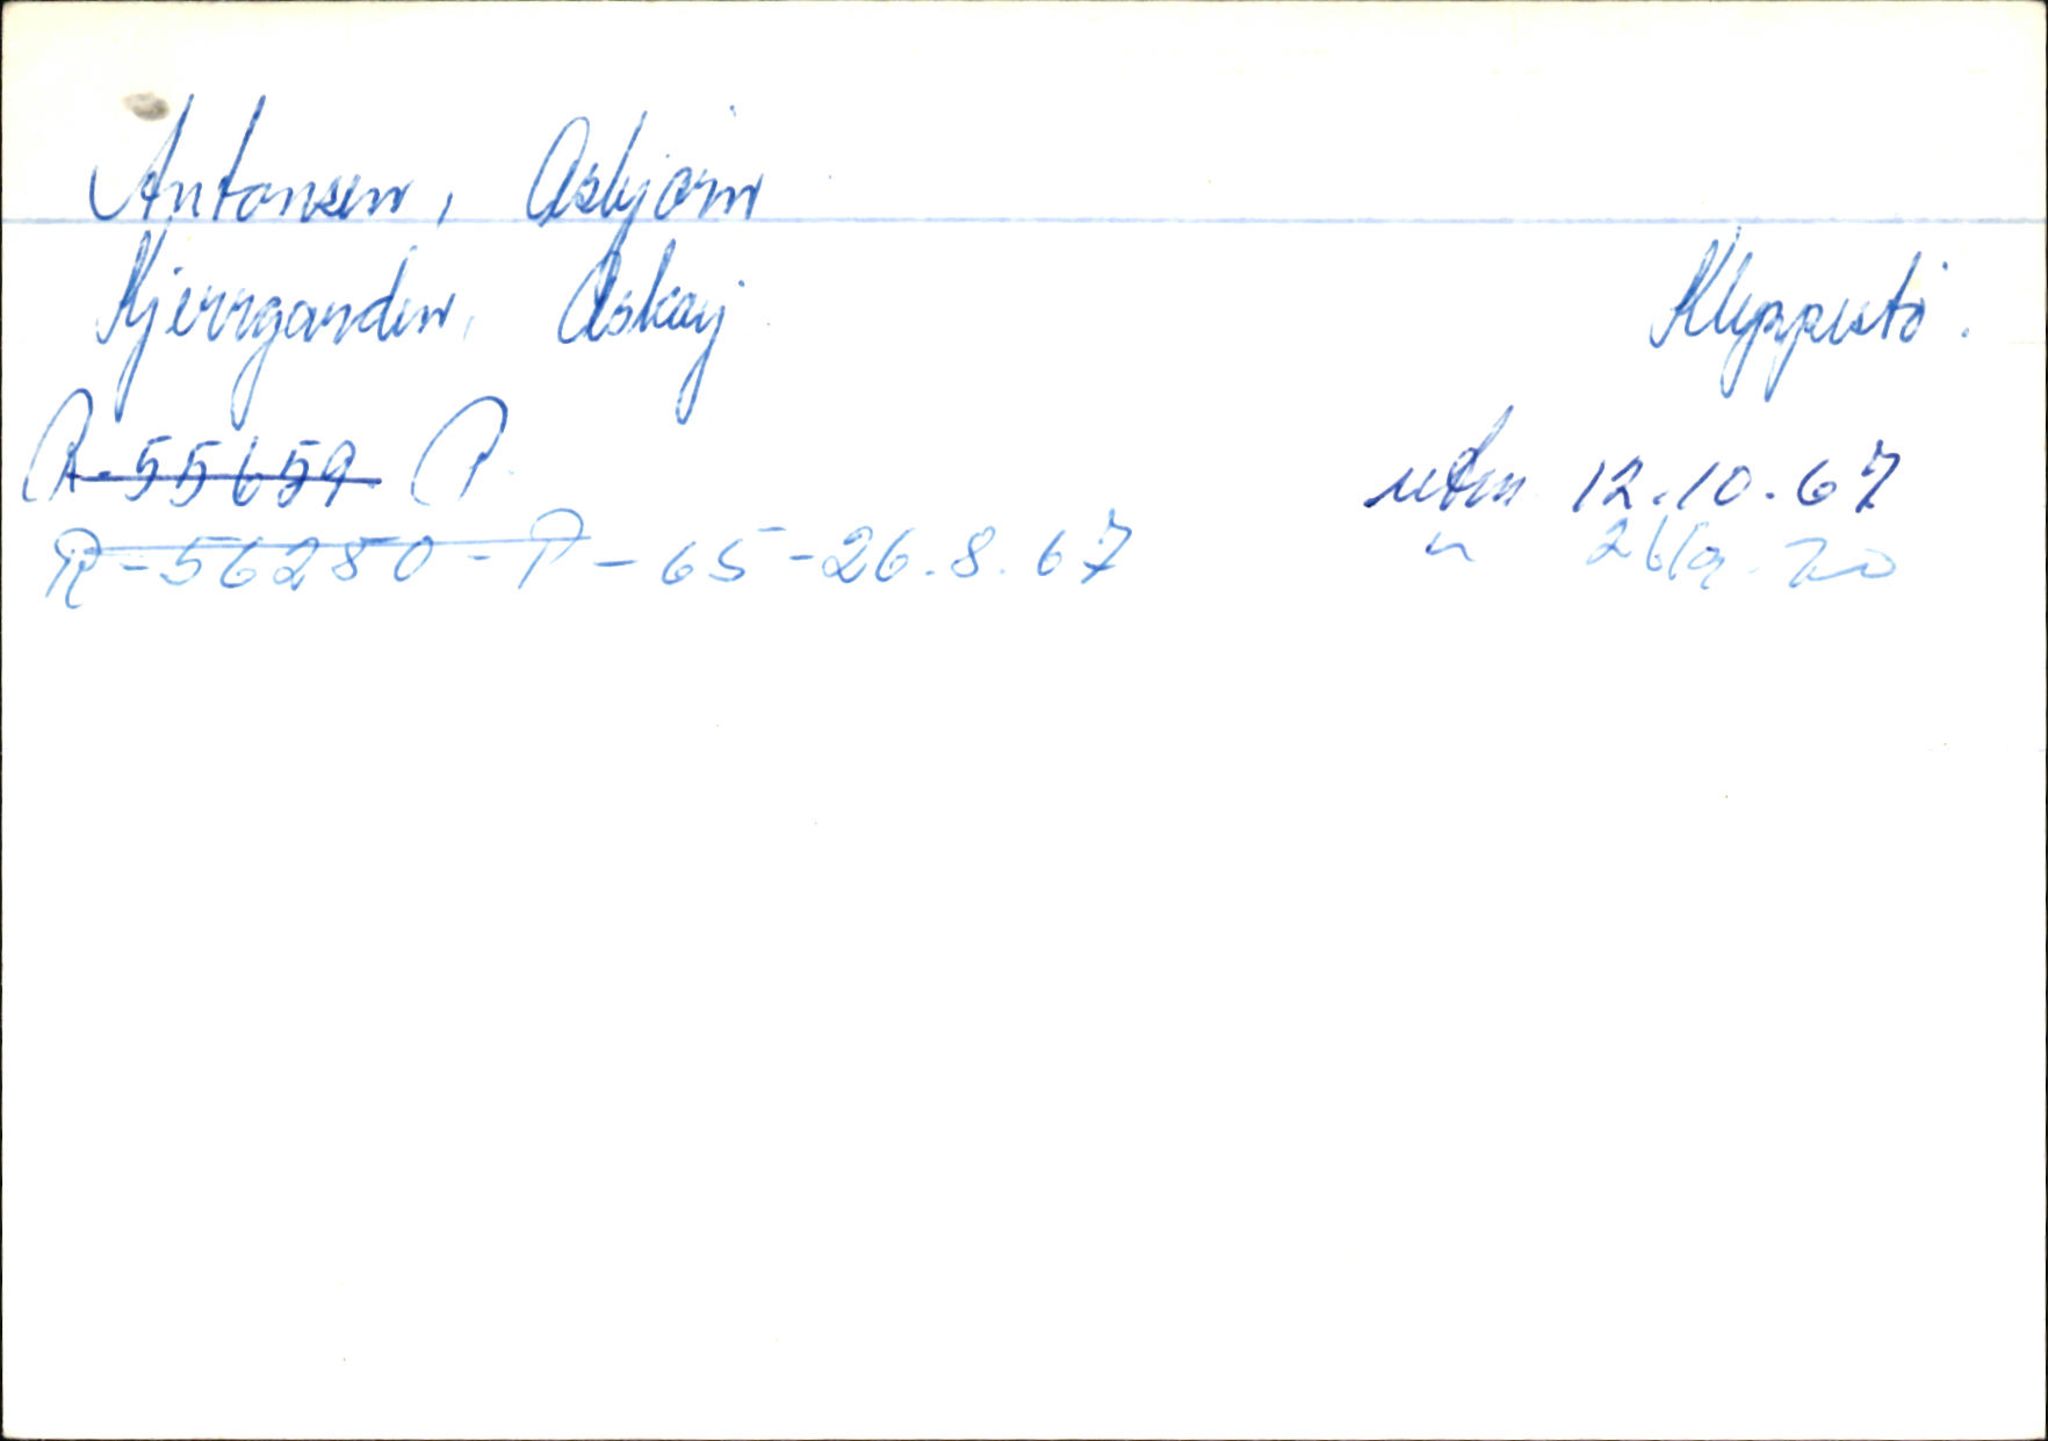 Antonsen, Asbjørn
Kjerrgarden, Askøy Kleppestø.
R-55659 P. utm 12.10.67
R-56280-P-65-26.8.67 " 26/9-70